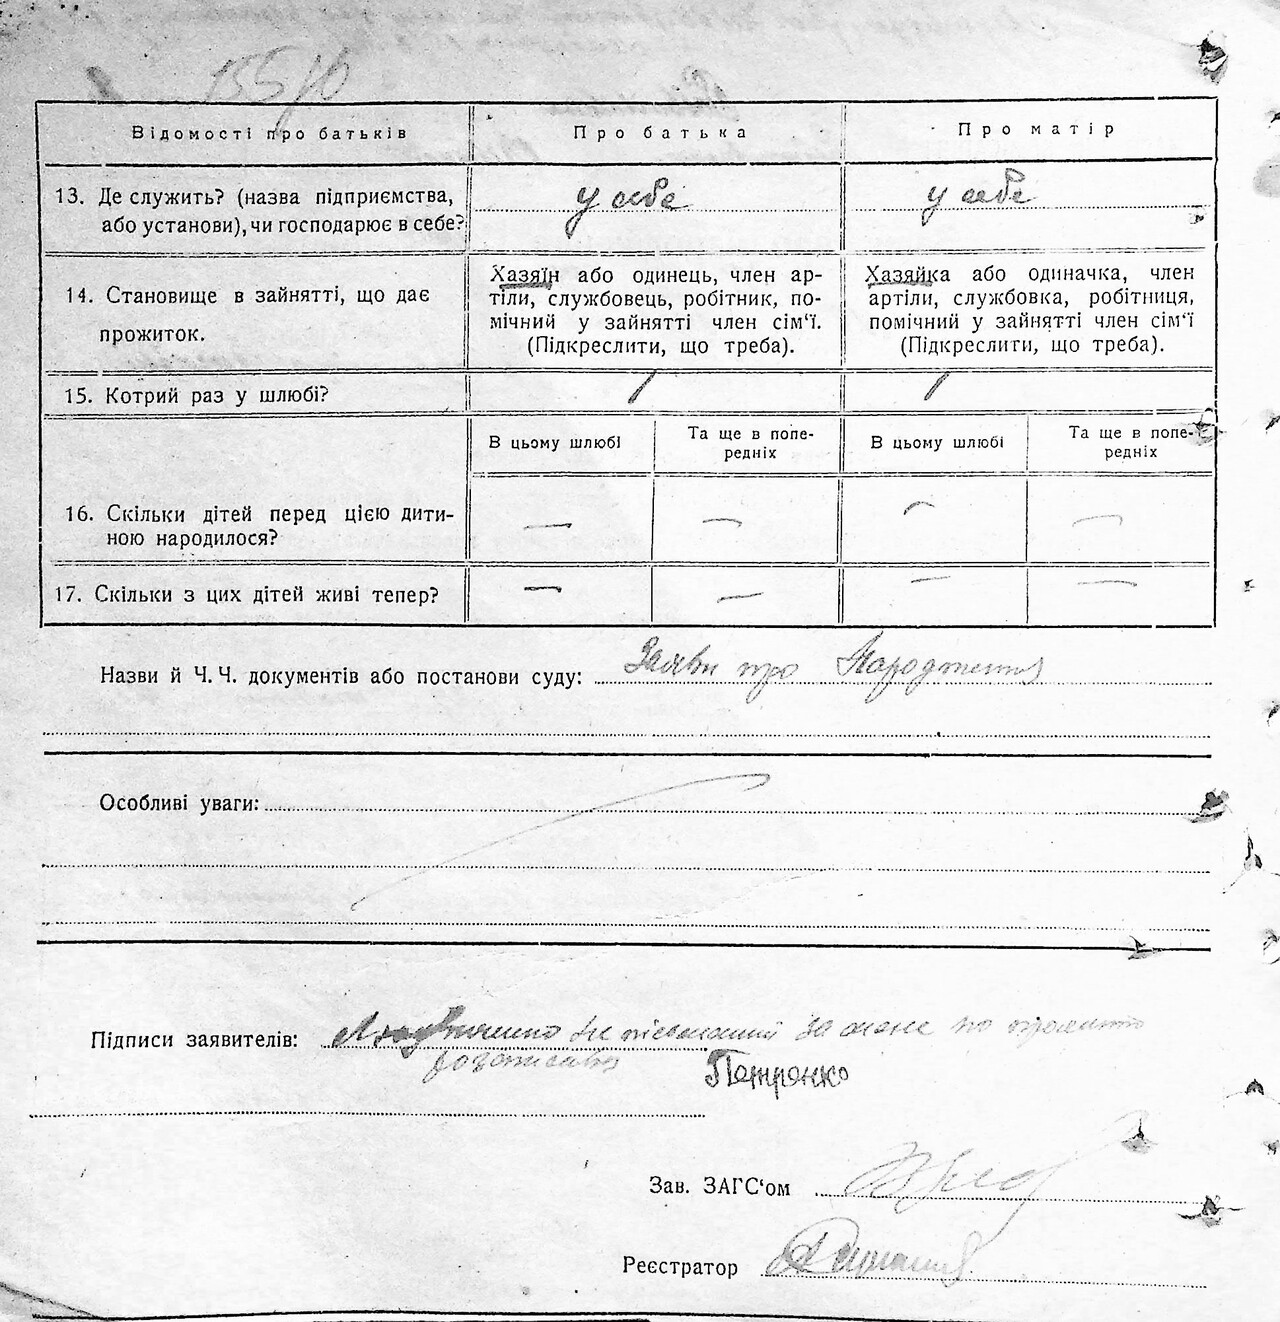 Відомості про батьків Про батька Про матір
13. Де служить? (назва підприємства, або установи), чи господарює в себе? у себе у себе
14. Становище в зайнятті, що дає прожиток.
Хазяїн або одинець, член ар-
тіли, службовець, робітник, по-
мічний у зайнятті член сім‘ї.
(Підкреслити, що треба).
Хазяйка або одиначка, член
артіли, службовка, робітниця,
помічний у зайнятті член сім‘ї
(Підкреслити, що треба).
15. Котрий раз у шлюбі? 1 1
В цьому шлюбі Та ще в попе-
редніх В цьому шлюбі Та ще в попе-
редніх
16. Скільки дітей перед цією дити-
ною народилося? — — — —
17. Скільки з цих дітей живі тепер? — — — —
Назви й Ч. Ч. документів або постанови суду: Заяви про Народження
Особливі уваги:
Підписи заявителів: за мене по
Петренко
Зав. ЗАГС‘ом
Реєстратор